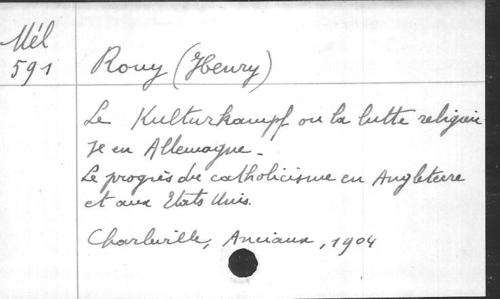 Mél
591
Rouy (Henry)
Le Kulturkampf ou la lutte religieu
se en Allemagne.
Le progrès du catholicisme en Angleterre
et aux Etats Unis.
Charleville, Anciaux, 1904